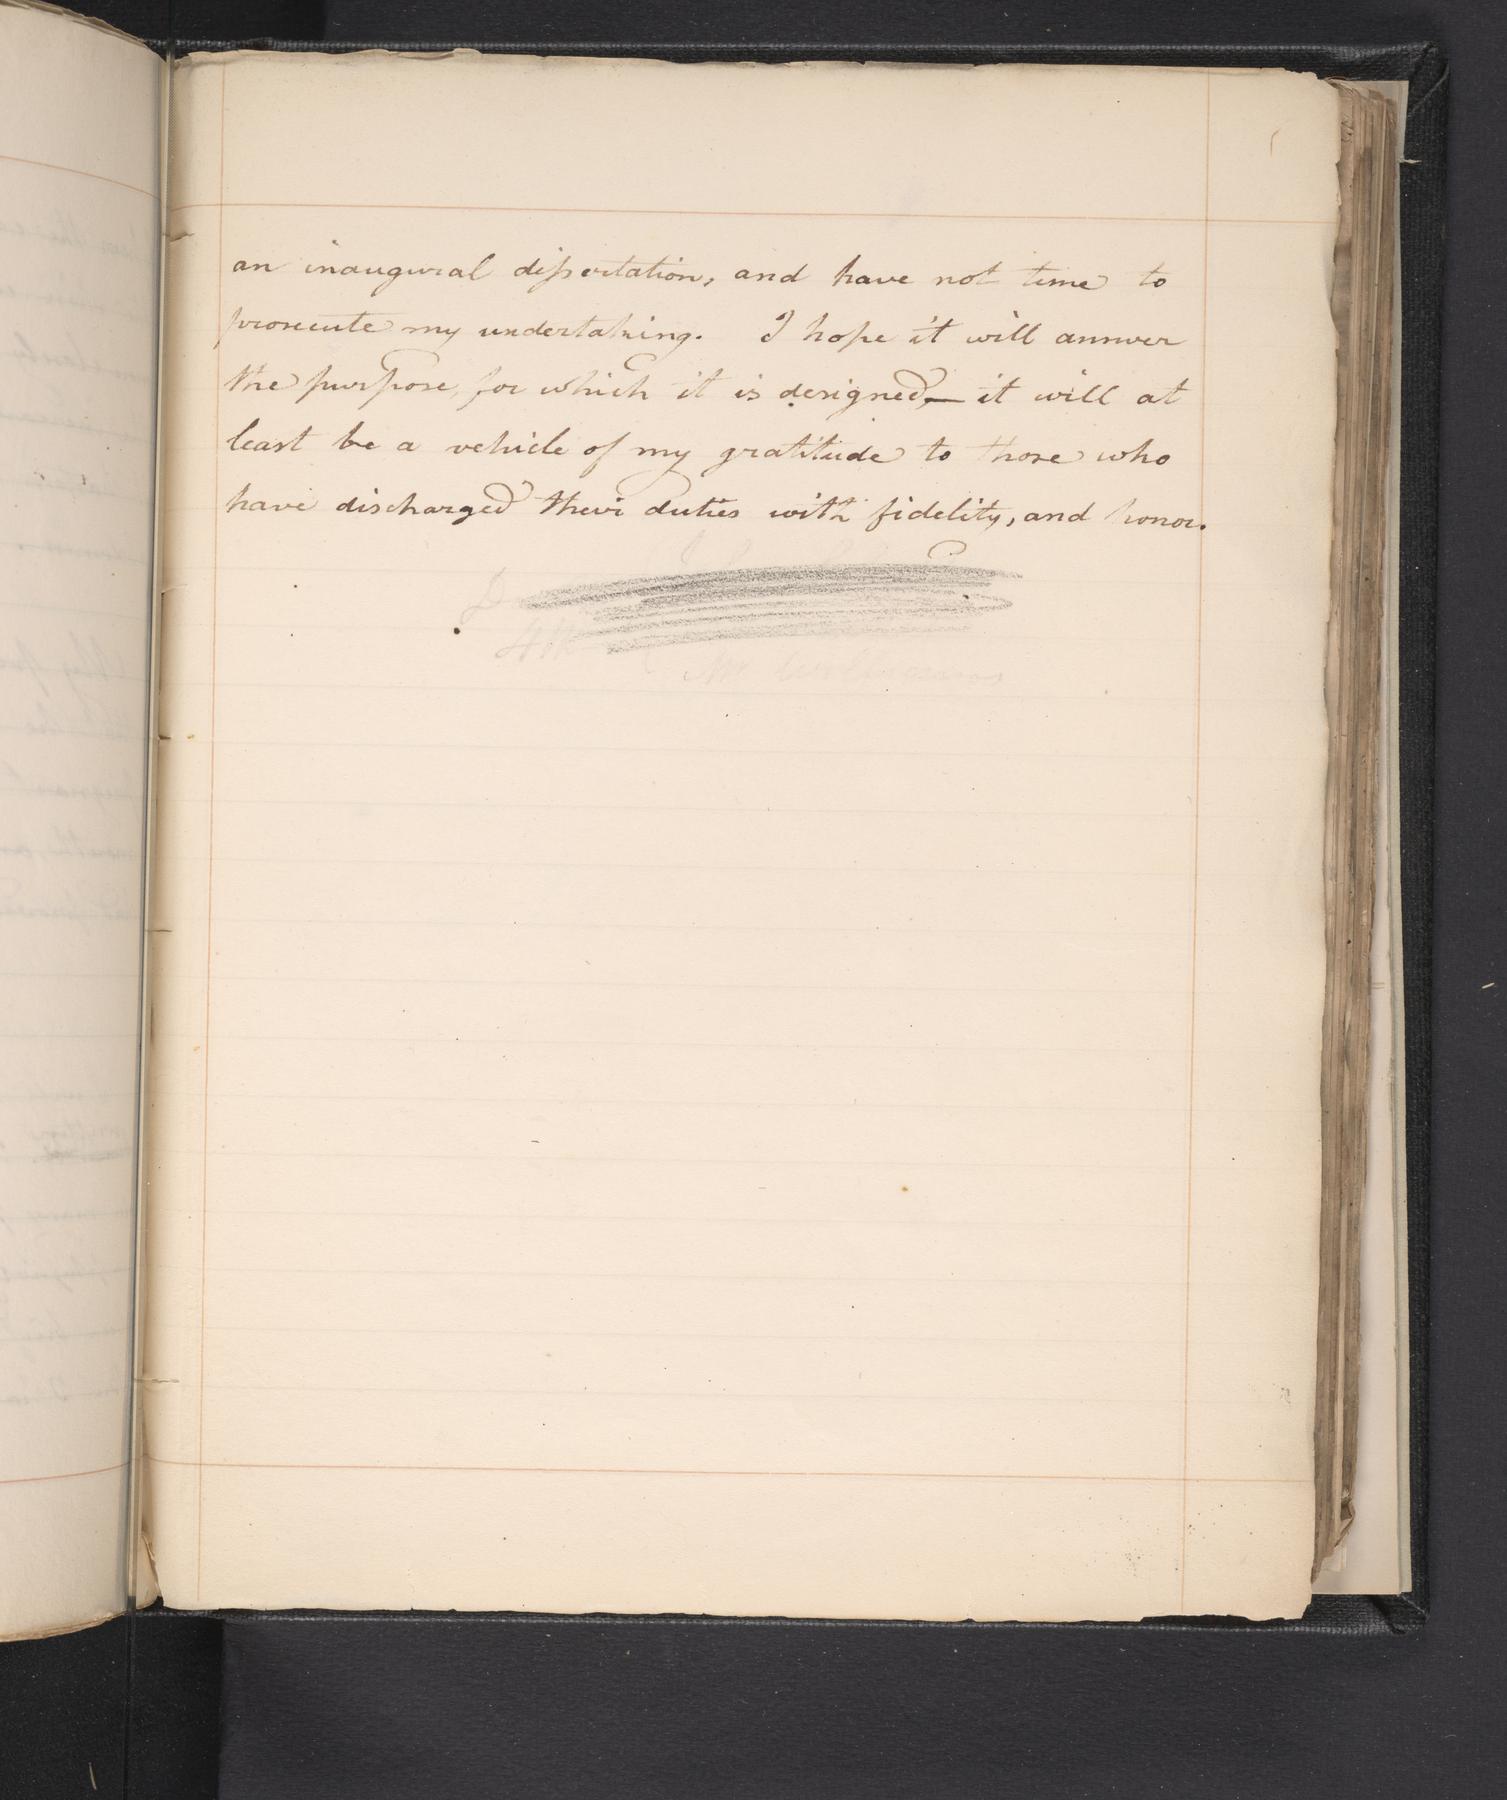 an inaugural dissertation, and have not time to
prosecute my undertaking. I hope it will answer
the purpose, for which it is designed,— it will at
least be a vehicle of my gratitude to those who
have discharged their duties with fidelity, and honor.